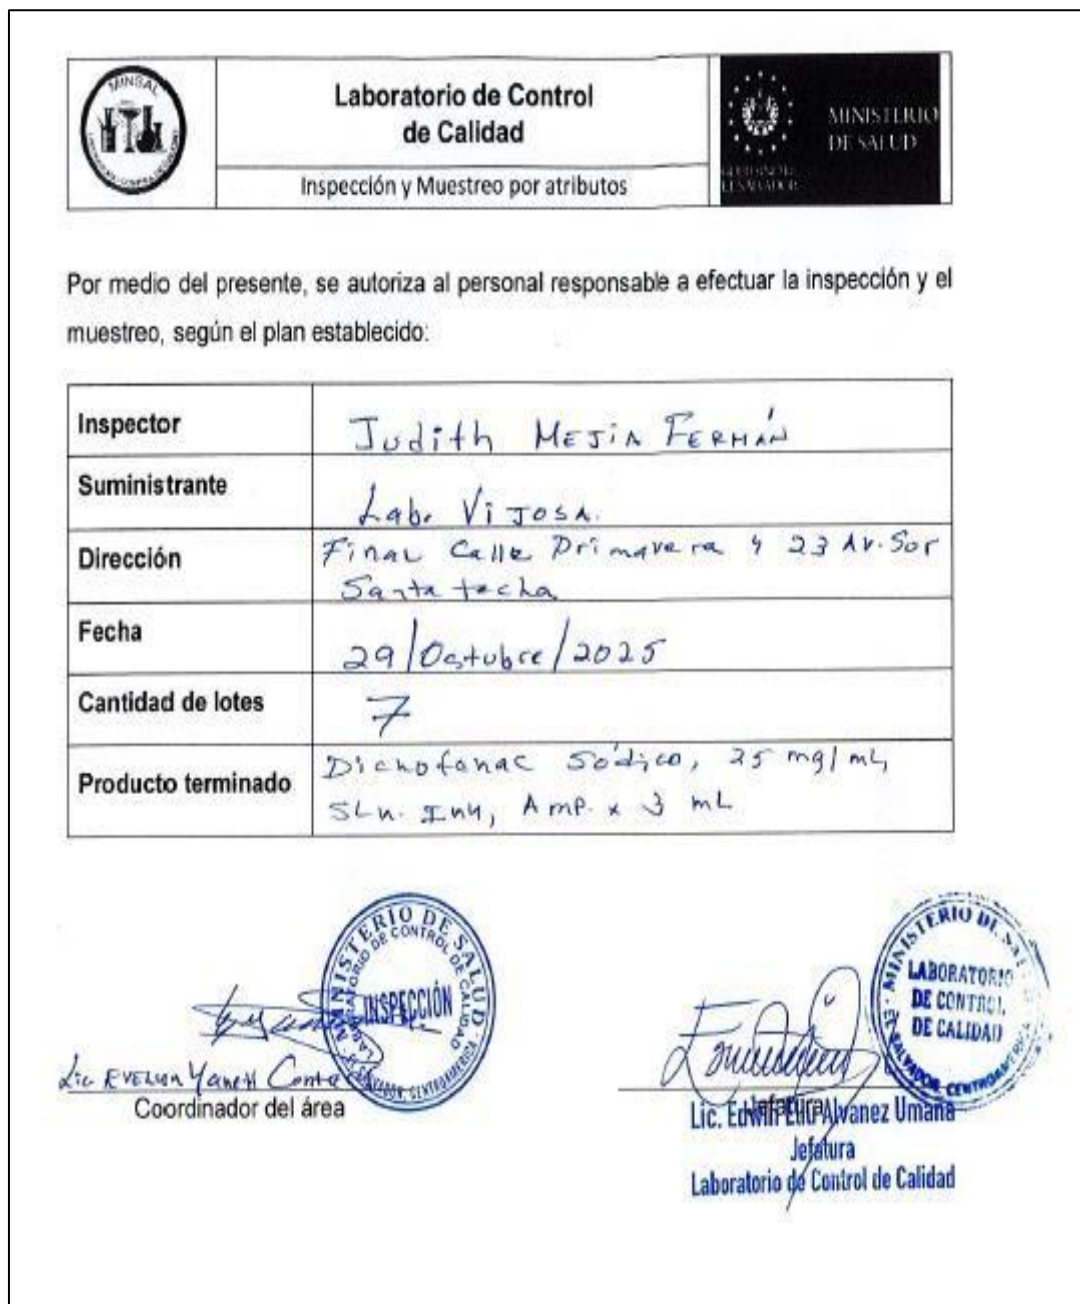 MINSAL
Laboratorio de Control
de Calidad
Inspección y Muestreo por atributos
GOBIERNO DE
EL SALVADOR
MINISTERIO
DE SALUD
Por medio del presente, se autoriza al personal responsable a efectuar la inspección y el
muestreo, según el plan establecido:
Inspector
Judith MEJÍA FERMÁN
Suministrante
Lab. ViJOSA.
Dirección
Final Calle Primavera y 23 Av. Sur
Santa tecla
Fecha
29/Octubre/2025
Cantidad de lotes
7
Producto terminado
Diclofenac Sódico, 25 mg/mL,
SLn. Iny, Amp. x 3 mL
MINISTERIO DE SALUD
LABORATORIO DE CONTROL DE CALIDAD
INSPECCIÓN
EL SALVADOR, CENTROAMERICA
Lic. Evelyn Yaneth
Coordinador del área
MINISTERIO DE
LABORATORIO
DE CONTROL
DE CALIDAD
EL SALVADOR, CENTROAMERICA
Jefatura
Lic. Edwin Alvanez Umaña
Jefatura
Laboratorio de Control de Calidad